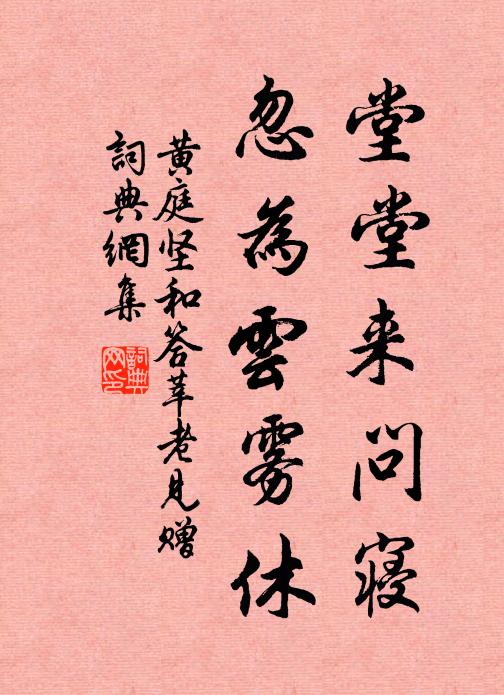 堂堂来问寝
忽為雲雾休
黄庭坚和答莘老見赠
詞典網集
詞典網印